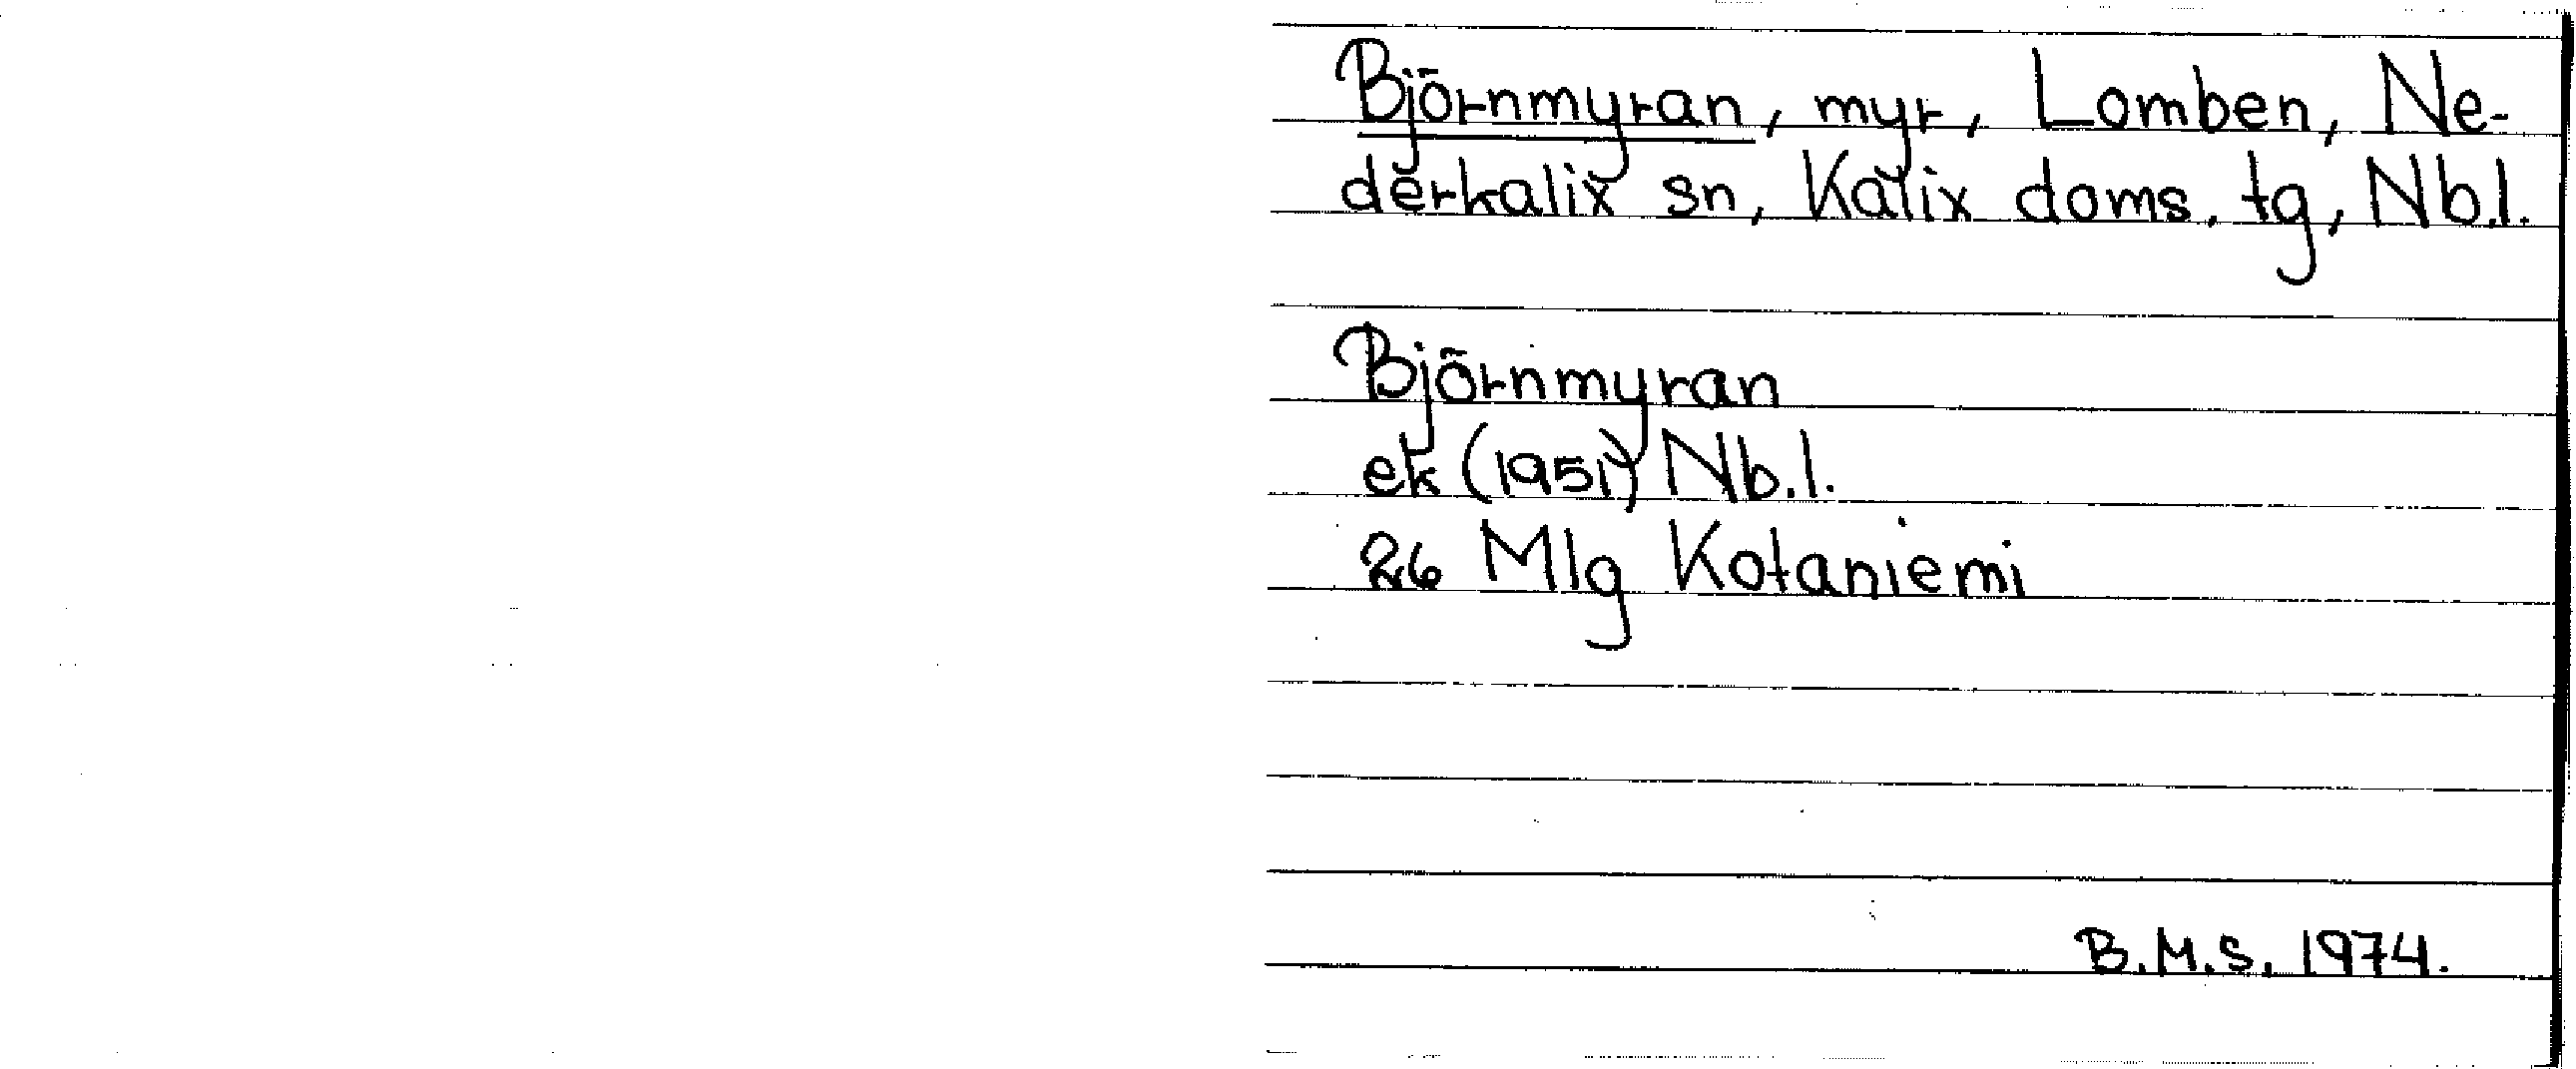 Björnmyran, myr, Lomben, Ne-
derkalix sn, Kalix doms. tg, Nb.l.
Björnmyran
ek (1951) Nb.l.
26 Mlg Kotaniemi
B.M.S. 1974.